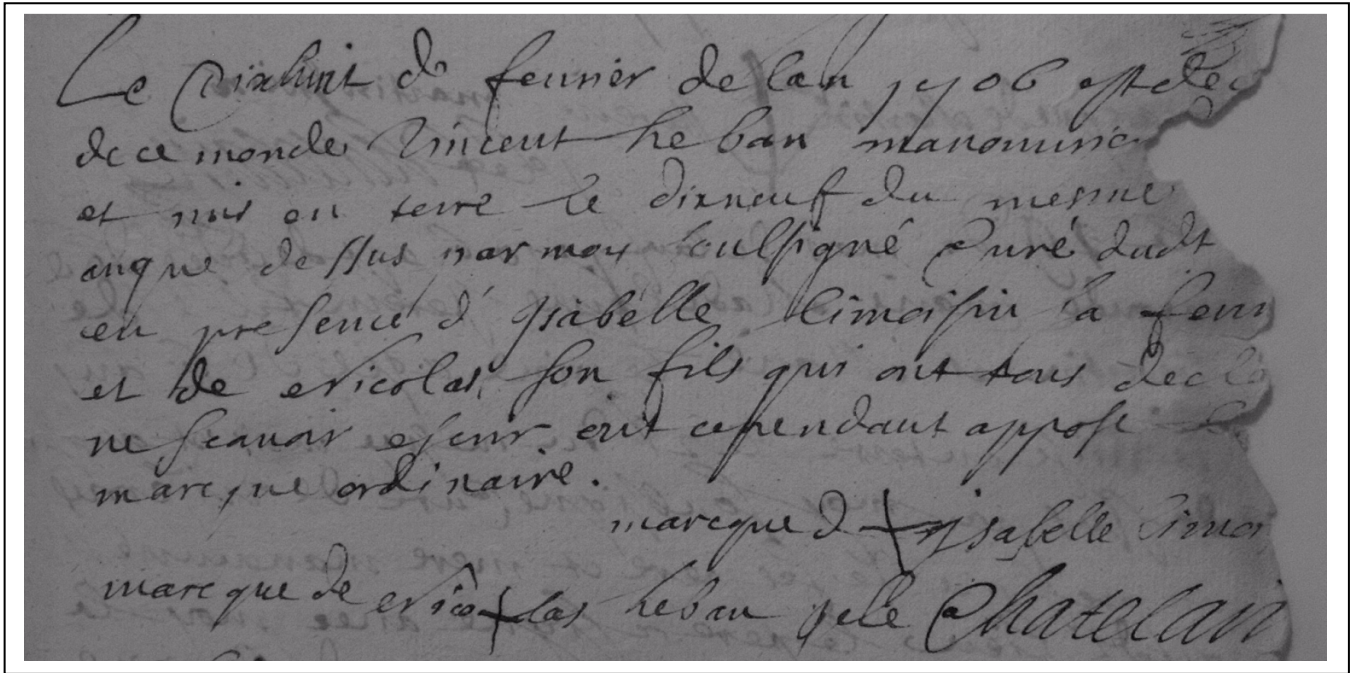 Le dixhuit de feurier de lan 1706 est dec
de ce monde Vincent heban manouurier
et mis en terre le dixneuf du mesme
anque dessus par moy soulsigné Curé dudt
en presence d' ysabelle limosin sa fem
et de Nicolas son fils qui ont tous decla
ne scauoir escrir ont cependant appose
marcque ordinaire.
marcque d + ysabelle limo
marcque de Nico + las heban Chatelain